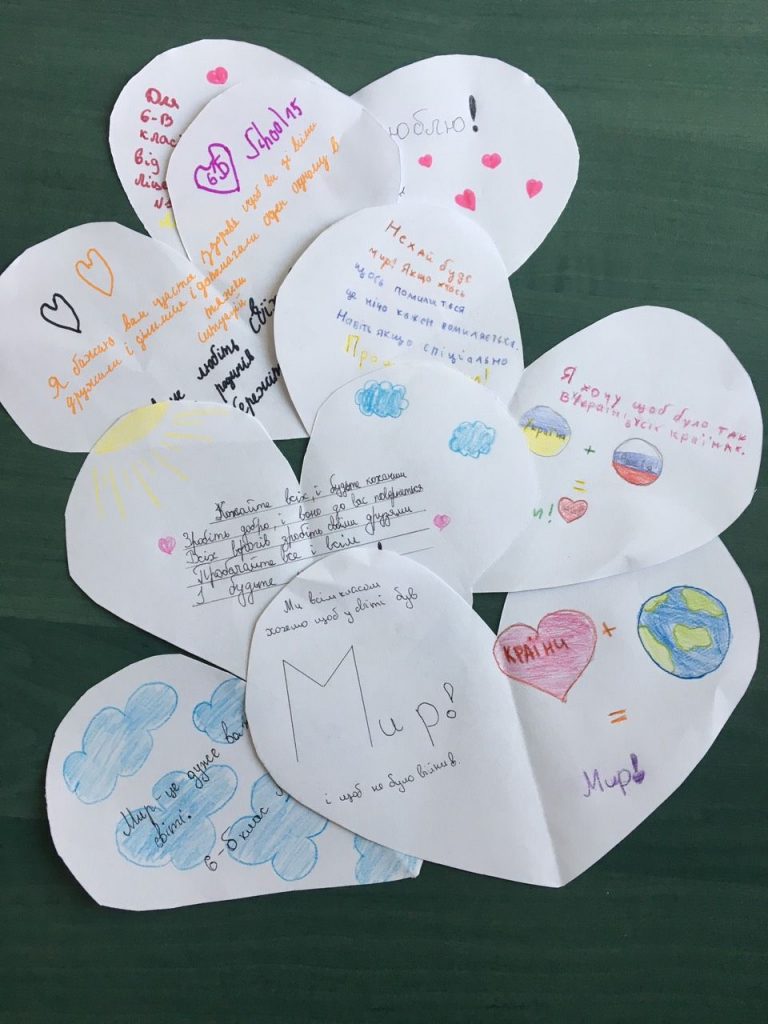 Для
6-В
класі
від
Ліце
School 15
6-D
юблю!
Я бажаю вам щастя здоровя щоб ви зі всіми
дружили і ділилися і допомагали оден одному в
любіть
родичів
бережіть
Нехай буде
мир! Якщо хтось
щось помилиться
це нічо кажен помиляється.
Навіть якщо спіціально
Я хочу щоб було так
в Україні і в усіх країнах.
Україна
+
=
и!
Кохайте всіх, і будьте коханими
Зробіть добро, і воно до вас повернеться
Всіх ворогів зробіть своїми друзями
Пробачайте все і всім
І будьте
Ми всім класом
хочемо щоб у світі був
Мир!
і щоб не було війнив.
КРАЇНИ
+
=
Мир!
Мир це дуже ва
світі.
6-Б клас